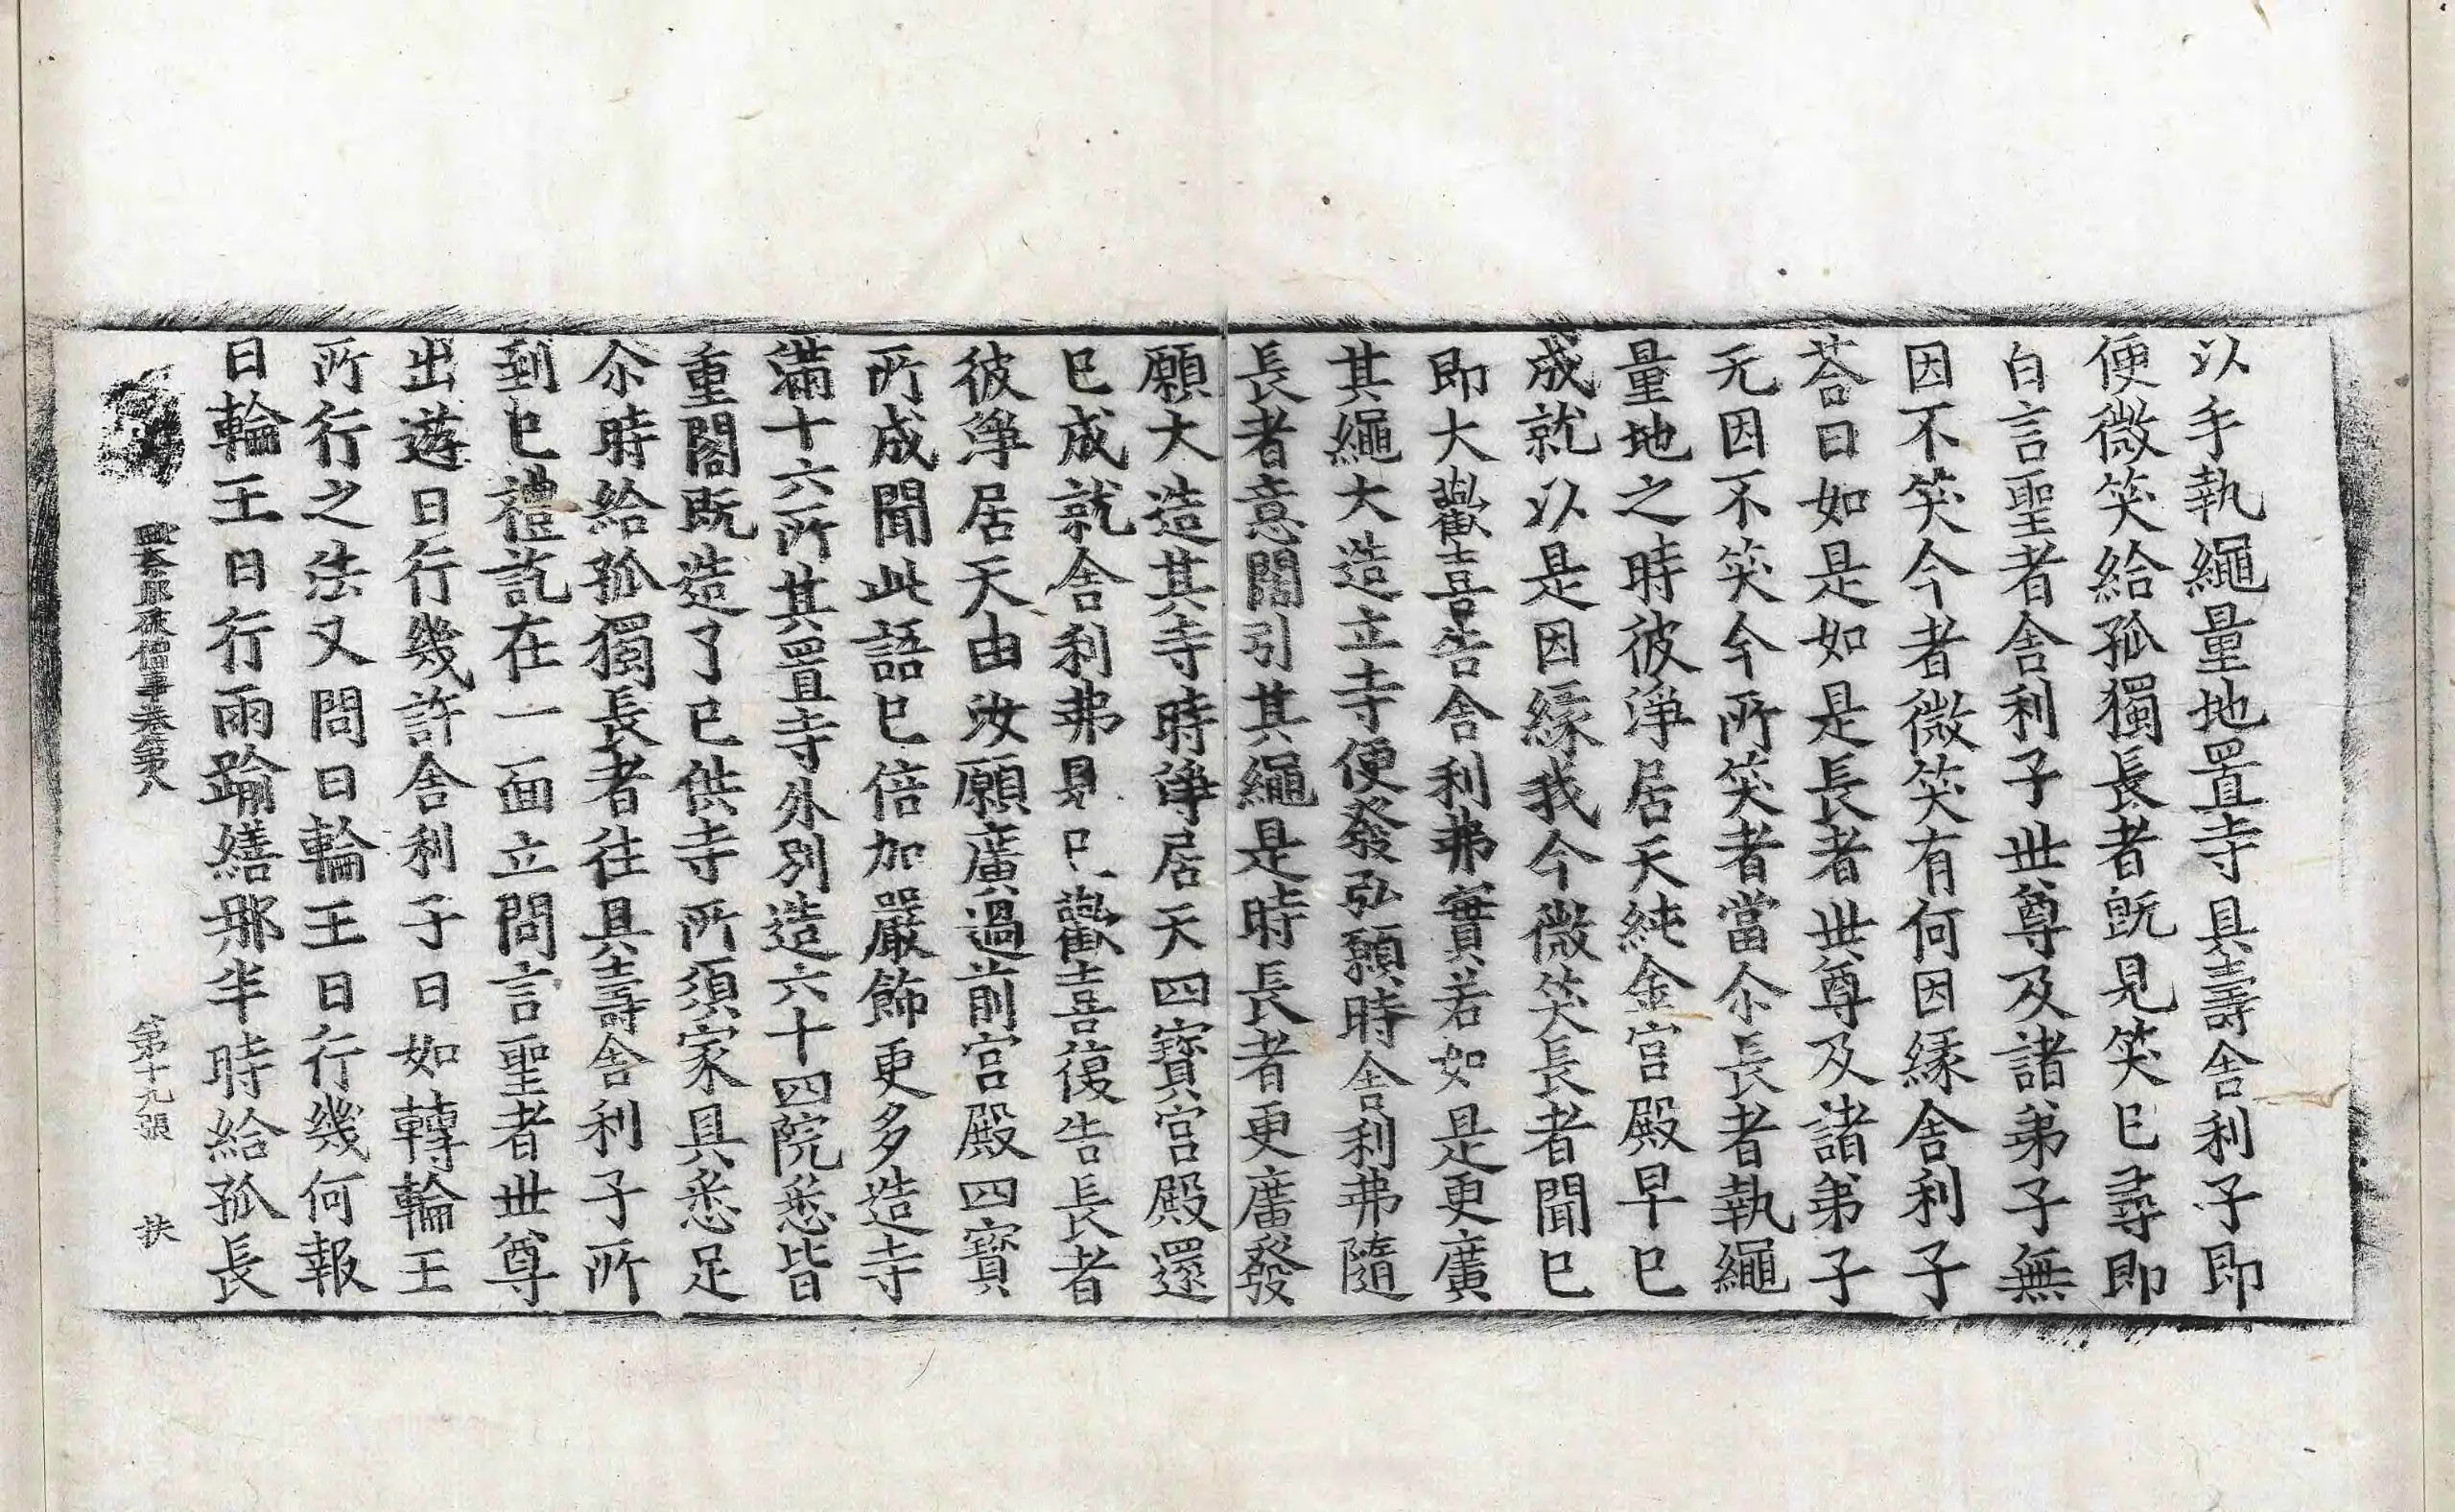 以手執繩量地置寺具壽舍利子即
便微笑給孤獨長者旣見笑已尋即
白言聖者舍利子世尊及諸弟子無
因不笑今者微笑有何因緣舍利子
荅曰如是如是長者世尊及諸弟子
无因不笑今所笑者當尒長者執繩
量地之時彼淨居天純金宮殿早已
成就以是因緣我今微笑長者聞已
即大歡喜告舍利弗實若如是更廣
其繩大造立寺便發弘願時舍利弗隨
長者意闊引其繩是時長者更廣發
願大造其寺時淨居天四寶宮殿還
已成就舍利弗見已歡喜復告長者
彼淨居天由汝願廣過前宮殿四寶
所成聞此語已倍加嚴飾更多造寺
滿十六所其置寺外別造六十四院悉皆
重閣旣造了已供寺所須家具悉足
尒時給孤獨長者往具壽舍利子所
到已禮訖在一面立問言聖者世尊
出遊日行幾許舍利子曰如轉輪王
所行之法又問曰輪王日行幾何報
曰輪王日行兩踰繕那半時給孤長
破僧事卷第八 第十九張 扶